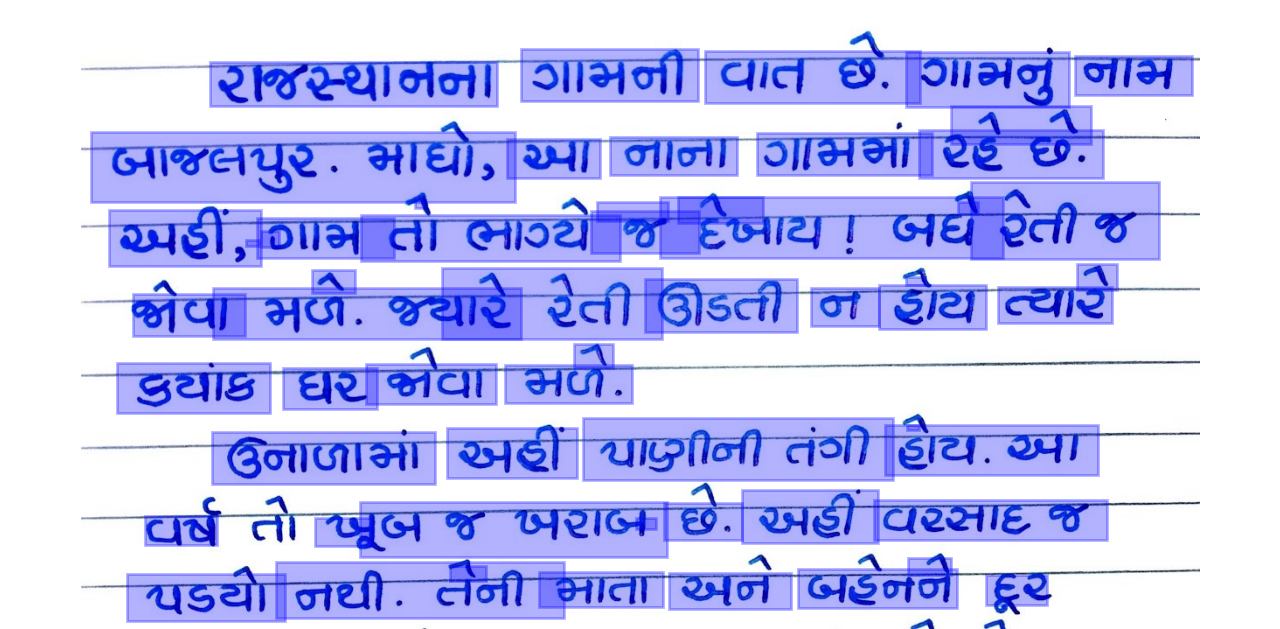 રાજસ્થાનના ગામની વાત છે. ગામનું નામ
બાજલપુર. માધો, આ નાના ગામમાં રહે છે.
અહીં, ગામ તો ભાગ્યે જ દેખાય ! બધે રેતી જ
જોવા મળે. જ્યારે રેતી ઊડતી ન હોય ત્યારે
કયાંક ઘર જોવા મળે.
ઉનાળામાં અહીં પાણીની તંગી હોય. આ
વર્ષ તો ખૂબ જ ખરાબ છે. અહીં વરસાદ જ
પડયો નથી. તેની માતા અને બહેનને દૂર